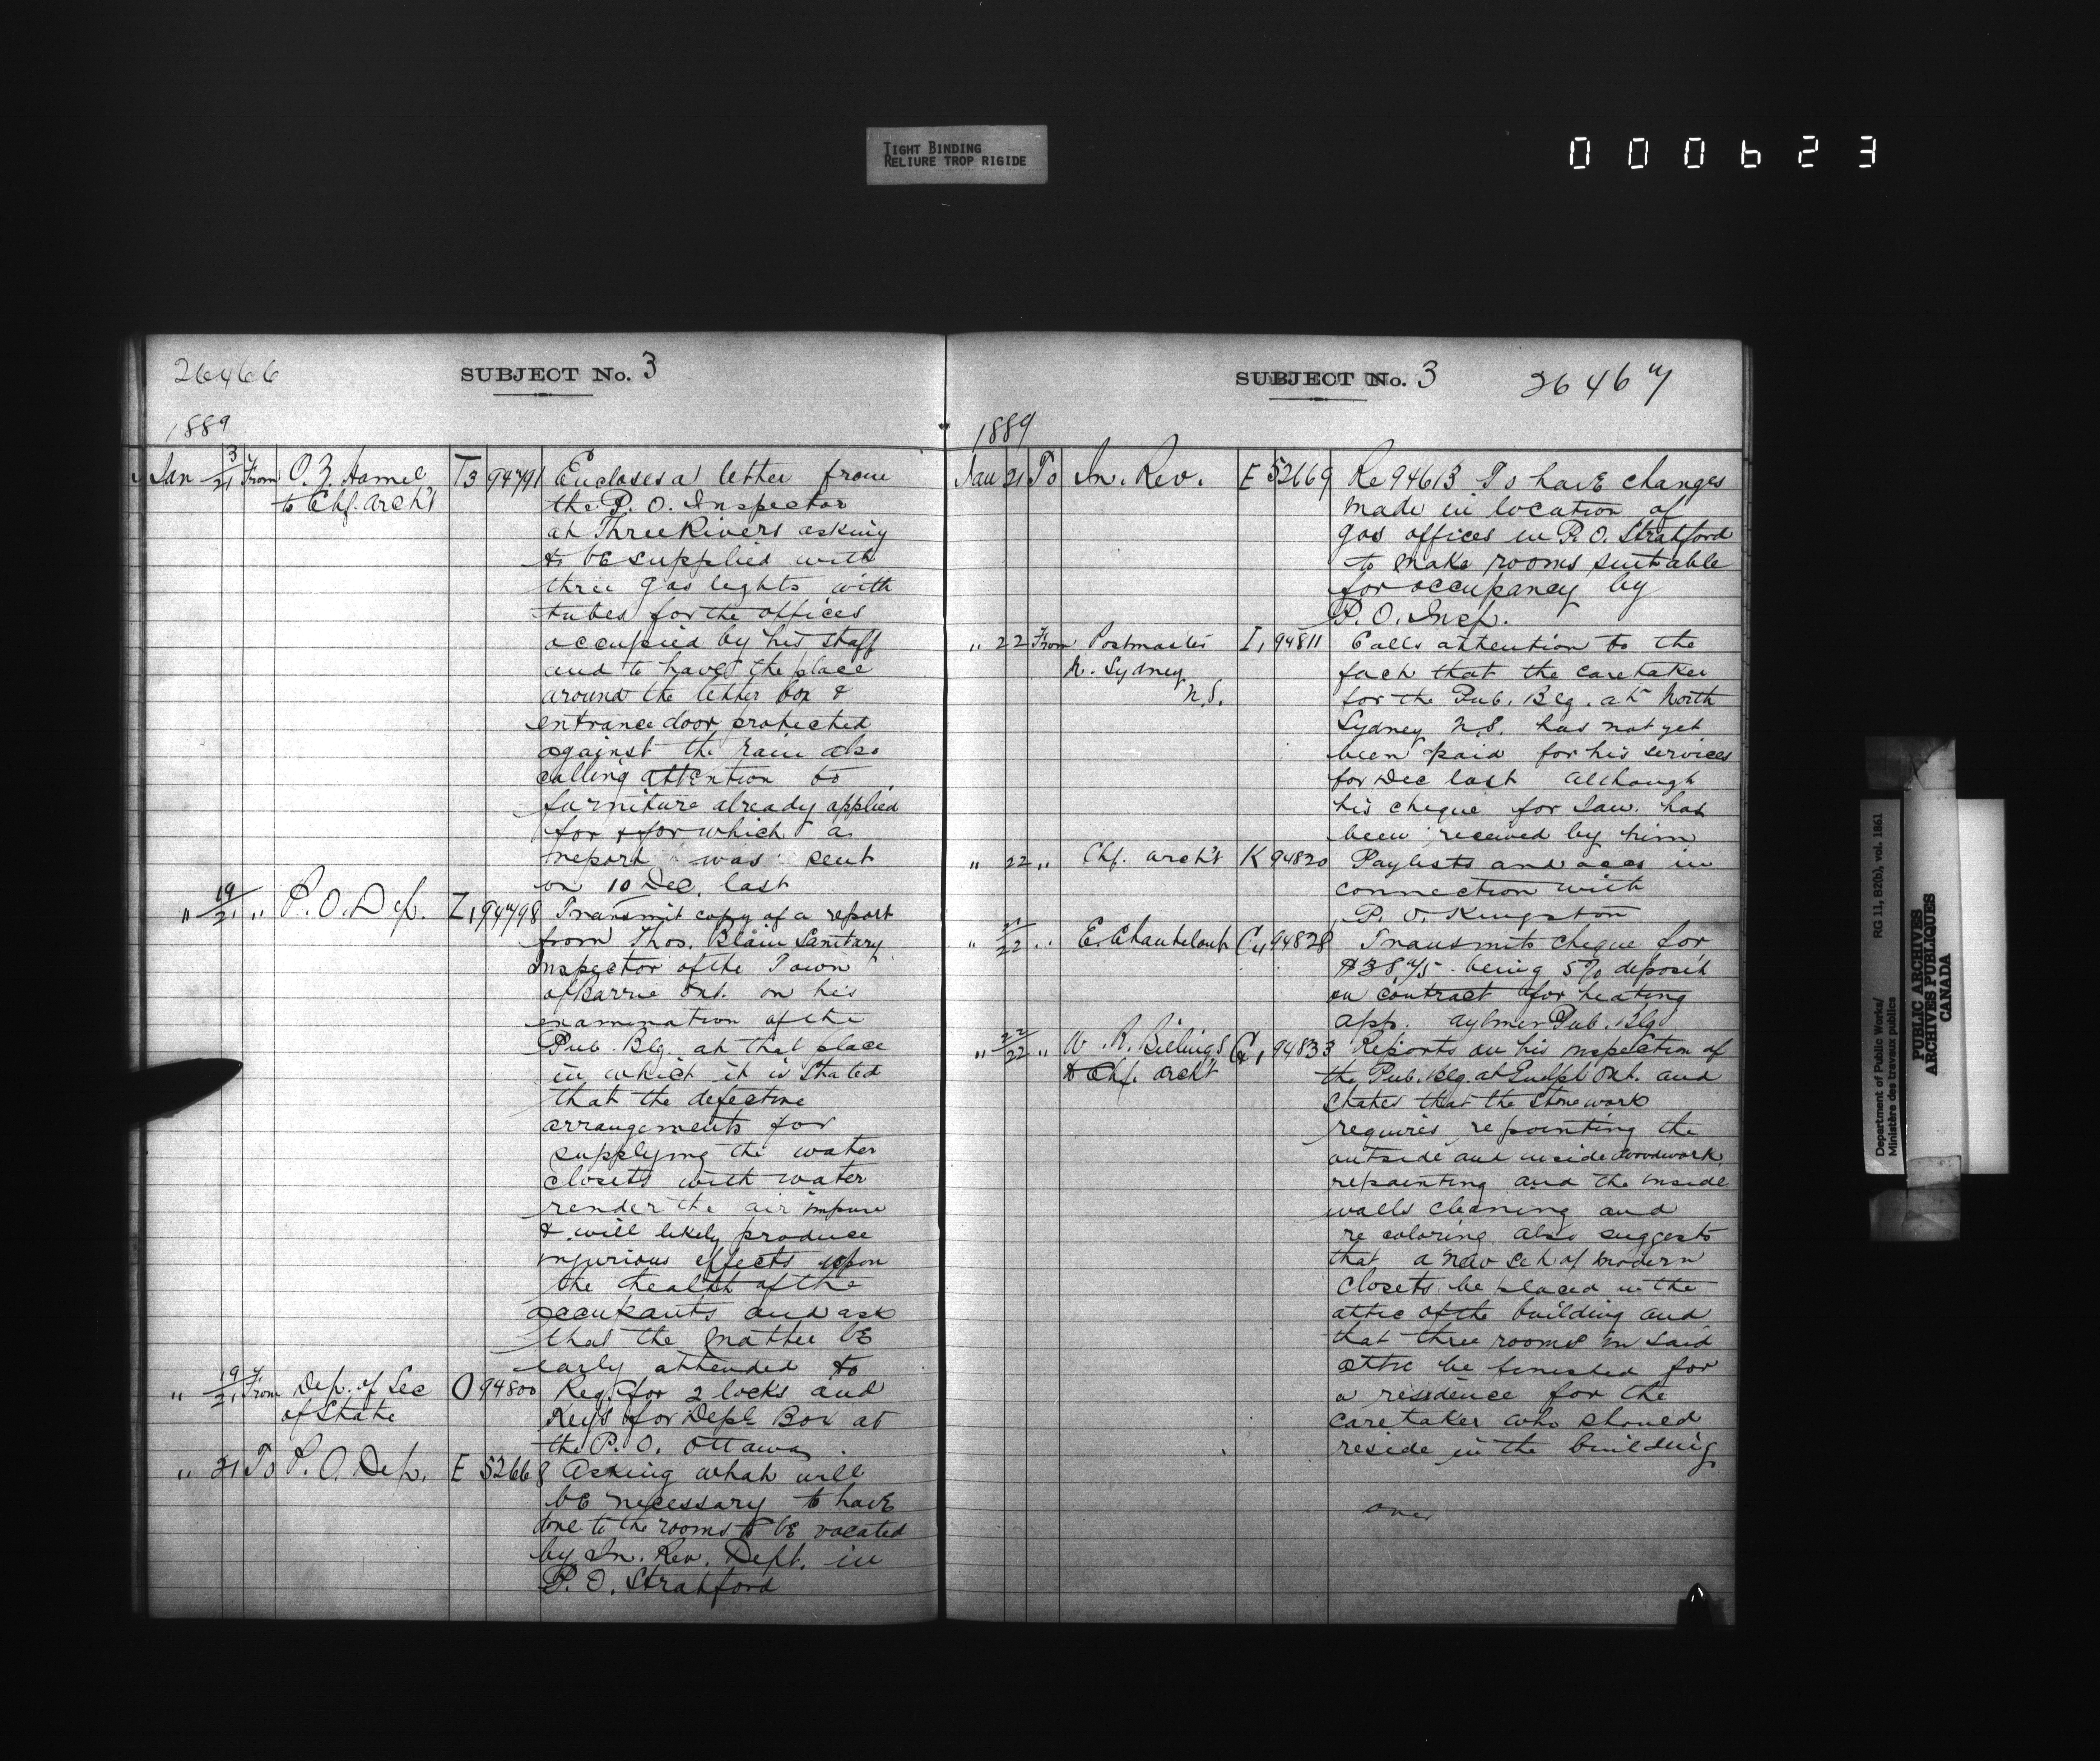 TIGHT BINDING
RELIURE TROP RIGIDE
000623
26466
SUBJECT No. 3
1889
Jan 3/21 From O. Z. Hamel T3 94791 Encloses a letter from
to Chf. Arch't the P. O. Inspector
at Three Rivers asking
to be supplied with
three gas lights with
tubes for the offices
occupied by his staff
and to have the place
around the letter box &
entrance door protected
against the rain also
calling attention to
furniture already applied
for & for which a
report was sent
on 10 Dec. last
" 19/21 " P. O. Dep. Z1 94798 Transmit copy of a report
from Thos. Blain Sanitary
Inspector of the Town
of Barrie Ont. on his
examination of the
Pub. Blg. at that place
in which it is stated
that the defective
arrangements for
supplying the water
closets with water
render the air impure
& will likely produce
injurious effects upon
the health of the
occupants and ask
that the matter be
early attended to
" 19/21 From Dep. of Sec O 94800 Reqr. for 2 locks and
of State Keys for Dept Box at
the P. O. Ottawa.
" 21 To P. O. Dep. E 52668 Asking what will
be necessary to have
done to the rooms to be vacated
by In. Rev. Dept. in
P. O. Stratford
SUBJECT No. 3
26467
1889
Jan 21 To In. Rev. E 52669 Re 94613 To have changes
made in location of
gas offices in P. O. Stratford
to make rooms suitable
for occupancy by
P. O. Insp.
" 22 From Postmaster I1 94811 Calls attention to the
N. Sydney fact that the caretaker
N.S. for the Pub. Blg. at North
Sydney N.S. has not yet
been paid for his services
for Dec last although
his cheque for Jan. has
been received by him
" 22 " Chf. Arch't K 94820 Paylists and accs in
connection with
P. O. Kingston
" 21/22 " E. Chanteloup C4 94828 Transmits cheque for
$38.75 being 5% deposit
on contract for heating
app. Aylmer Pub. Blg
" 22/22 " W. R. Billings G1 94833 Reports on his inspection of
to Chf. Arch't the Pub. Blg. at Guelph Ont. and
states that the stonework
requires repointing the
outside and inside woodwork
repainting and the inside
walls cleaning and
re coloring also suggests
that a new set of modern
closets be placed in the
attic of the building and
that three rooms in said
attic be finished for
a residence for the
caretaker who should
reside in the building
over
Department of Public Works/
Ministère des travaux publics
RG 11, B2(b), vol. 1861
PUBLIC ARCHIVES
ARCHIVES PUBLIQUES
CANADA